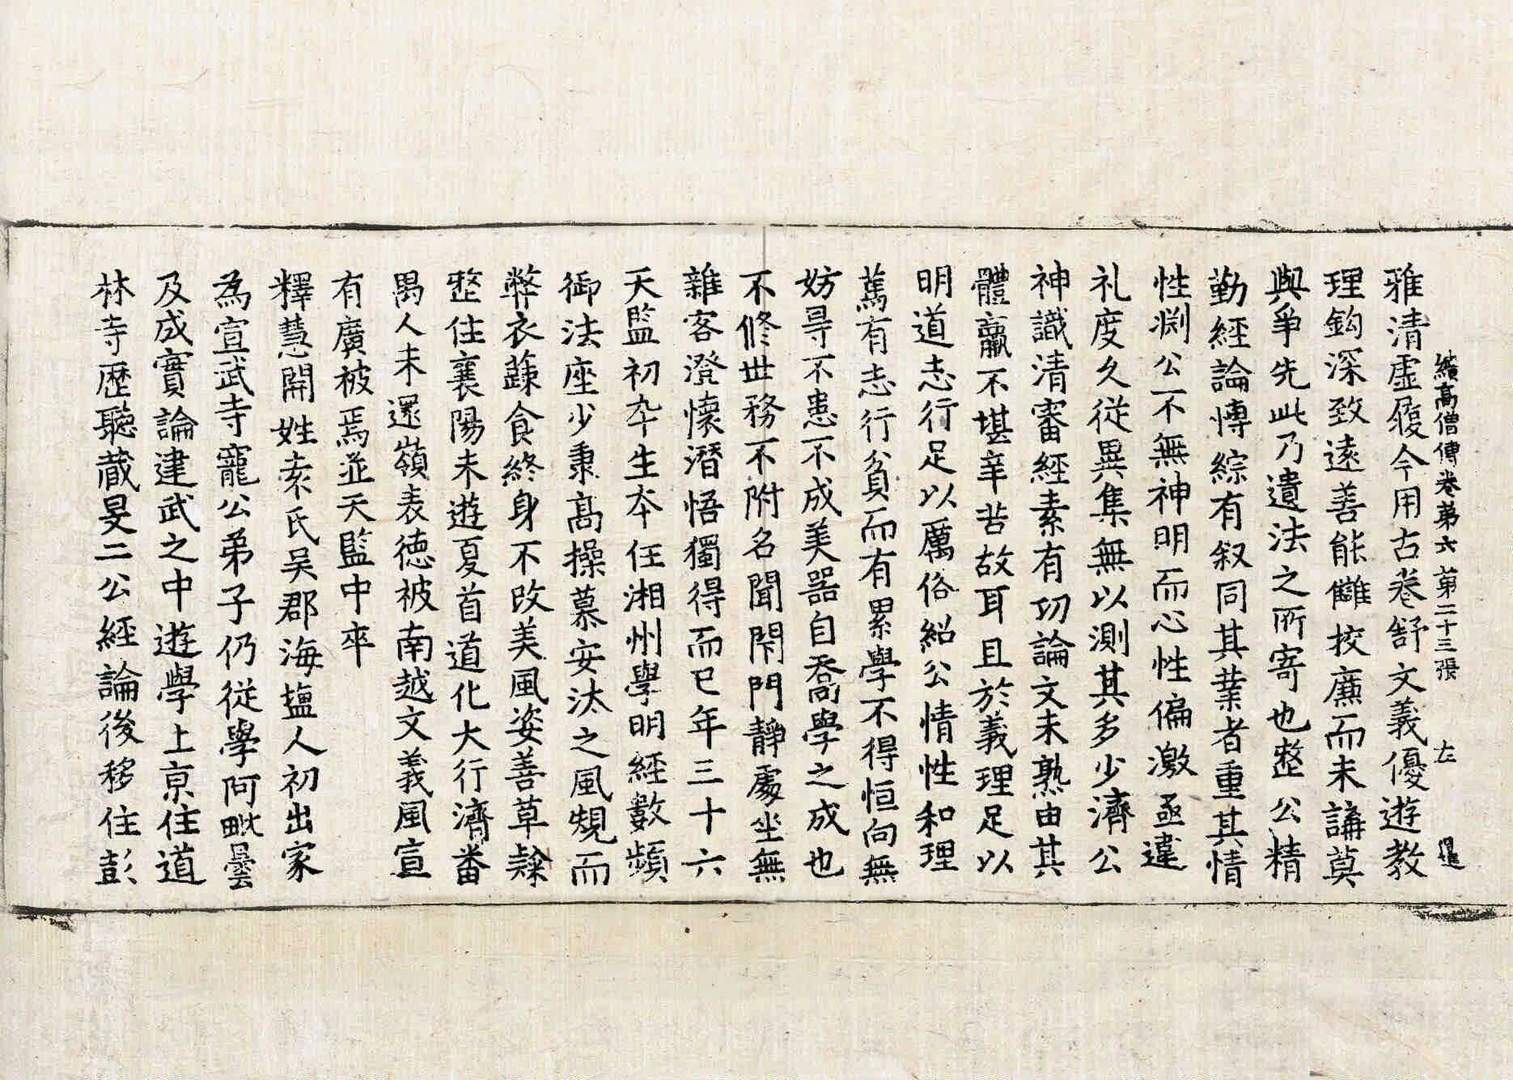 續高僧傳卷第六 第二十三張 左
雅清虛履今用古卷舒文義優遊教
理鈎深致遠善能讎挍廉而未講莫
與爭先此乃遺法之所寄也整公精
勤經論博綜有叙同其業者重其情
性渕公不無神明而心性偏激亟違
礼度久從異集無以測其多少濟公
神識清審經素有功論文未熟由其
體羸不堪辛苦故耳且於義理足以
明道志行足以厲俗紹公情性和理
篤有志行貧而有累學不得恒向無
妨尋不患不成美器自喬學之成也
不修世務不附名聞閇門靜處坐無
雜客澄懷潛悟獨得而已年三十六
天監初卒生夲任湘州學明經數頻
御法座少秉髙操慕安汰之風規而
弊衣蔬食終身不改美風姿善草隸
整住襄陽末遊夏首道化大行濟番
禺人未還嶺表德被南越文義風宣
有廣被焉並天監中卒
釋慧開姓袁氏吴郡海塩人初出家
為宣武寺寵公弟子仍從學阿毗曇
及成實論建武之中遊學上京住道
林寺歷聽藏旻二公經論後移住彭